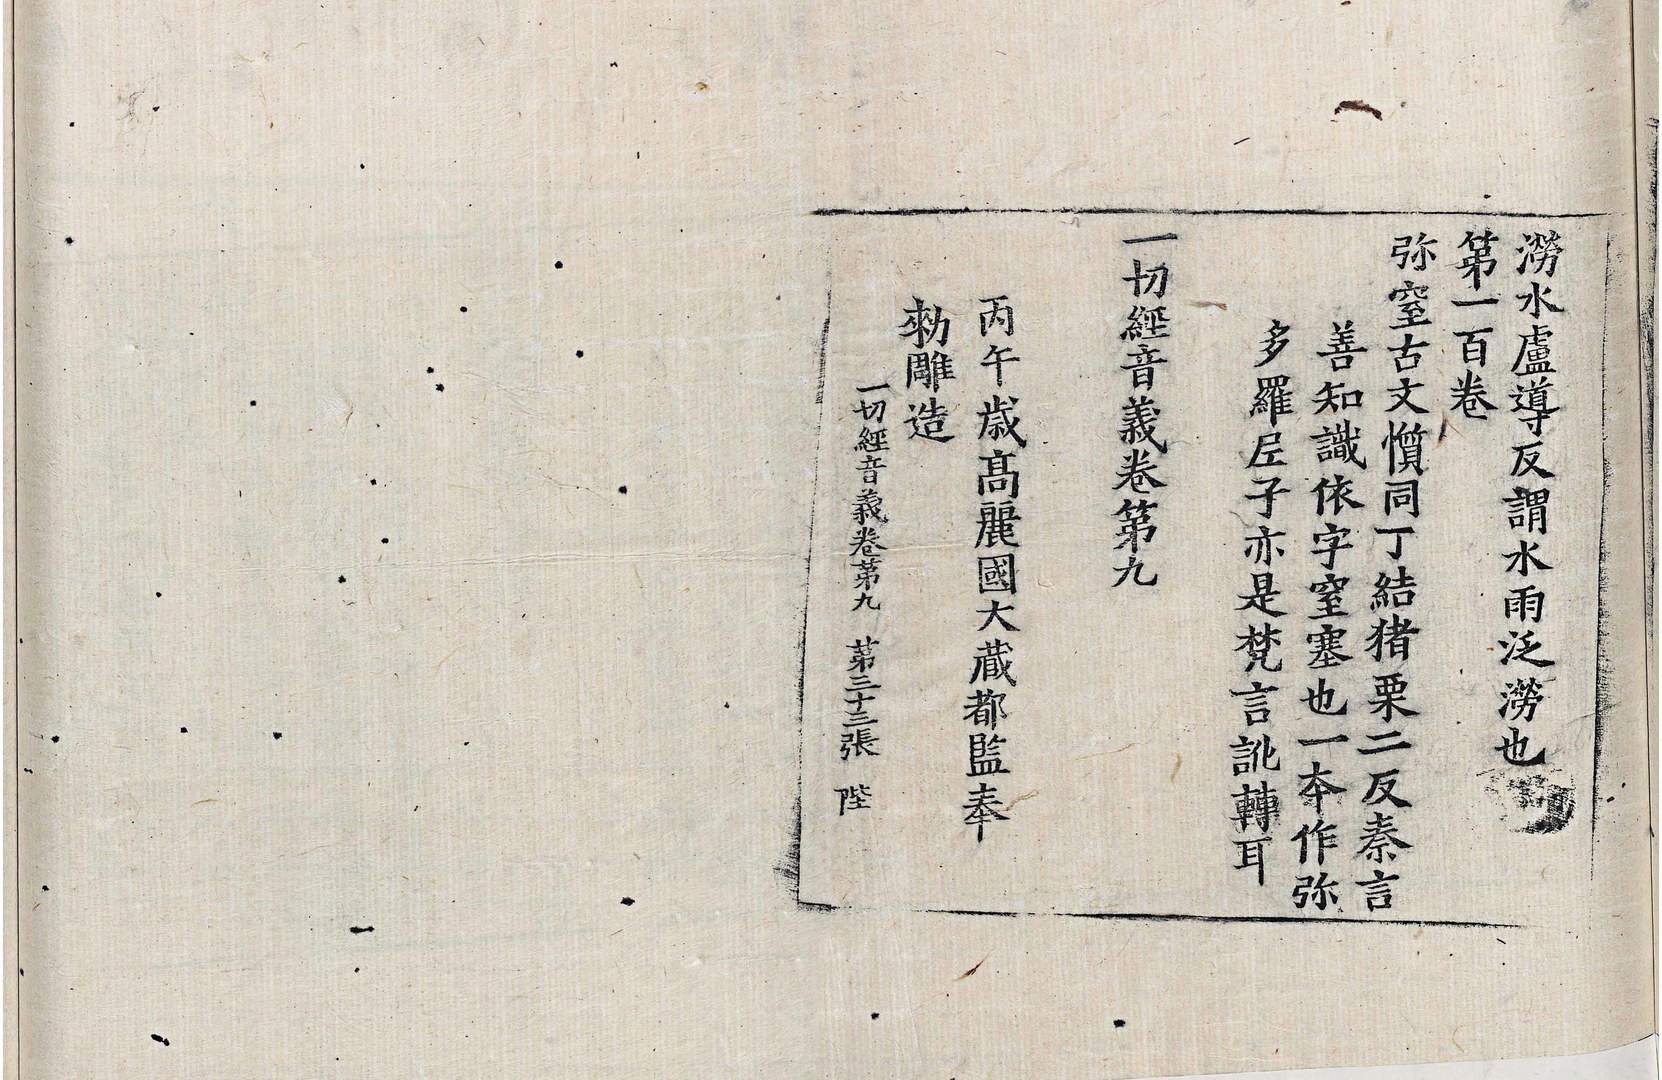 澇水盧導反謂水雨泛澇也
第一百卷
弥窒古文懫同丁結猪栗二反秦言
善知識依字窒塞也一本作弥
多羅𡰱子亦是梵言訛轉耳
一切經音義卷第九
丙午歳高麗國大藏都監奉
勑雕造
一切經音義卷第九 第三十三張 陛